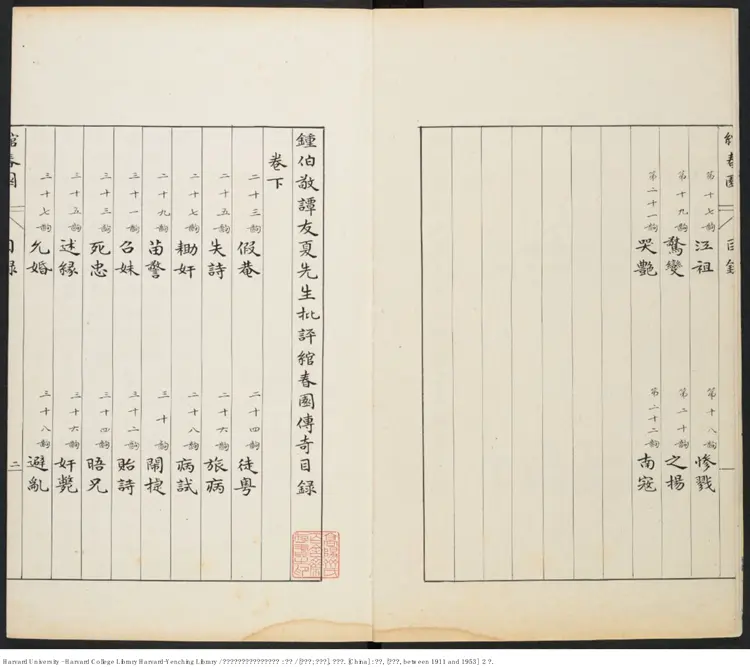 綰春園 目錄 一
第十七齣 江祖 第十八齣 慘戮
第十九齣 驚變 第二十齣 之揚
第二十一齣 哭艷 第二十二齣 南寇
鍾伯敬譚友夏先生批評綰春園傳奇目録
卷下
二十三齣 假菴 二十四齣 徙粵
二十五齣 失詩 二十六齣 旅病
二十七齣 耡奸 二十八齣 病試
二十九齣 苗警 三十齣 鬧捷
三十一齣 召妹 三十二齣 貽詩
三十三齣 死忠 三十四齣 晤兄
三十五齣 述緣 三十六齣 奸斃
三十七齣 允婚 三十八齣 避亂
綰春園 目録 二
Harvard University - Harvard College Library Harvard-Yenching Library / ??????????????? : ?? / [???; ???]. ???. [China] : ??, [???, between 1911 and 1953] 2 ?.